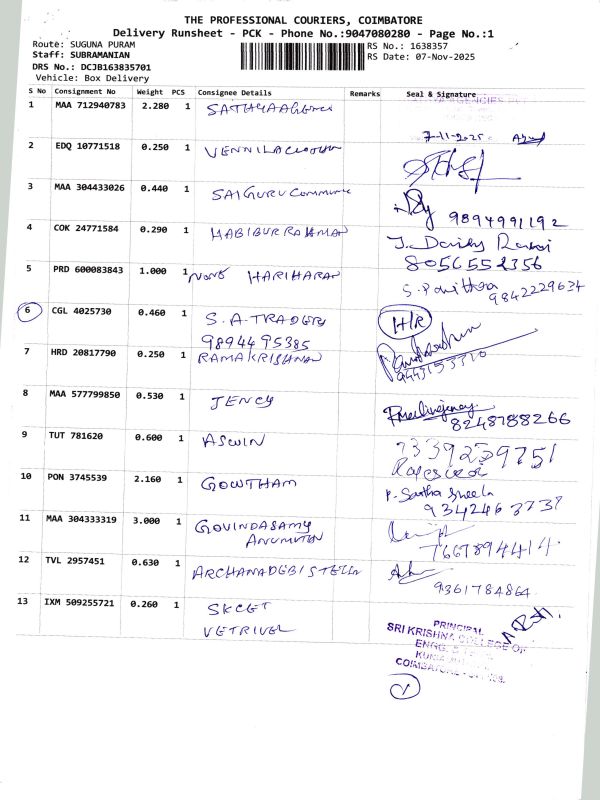 THE PROFESSIONAL COURIERS, COIMBATORE
Delivery Runsheet - PCK - Phone No.:9047080280 - Page No.:1
Route: SUGUNA PURAM
RS No.: 1638357
Staff: SUBRAMANIAN
RS Date: 07-Nov-2025
DRS No.: DCJB163835701
Vehicle: Box Delivery
S No Consignment No Weight PCS Consignee Details Remarks Seal & Signature
1 MAA 712940783 2.280 1 SATHYA AGENCY
7-11-2025
2 EDQ 10771518 0.250 1 VENNILA
3 MAA 304433026 0.440 1 SAIGURU
9894991192
4 COK 24771584 0.290 1 HABIBUR RAHMAN
8056552356
5 PRD 600083843 1.000 1 HARIHARAN
S. Pavithra
9842229634
6 CGL 4025730 0.460 1 S.A. TRADERS H/R
9894495385
7 HRD 20817790 0.250 1 RAMAKRISHNAN
8 MAA 577799850 0.530 1 JENCY
8248788266
9 TUT 781620 0.600 1 ASWIN 7339259751
10 PON 3745539 2.160 1 GOWTHAM
11 MAA 304333319 3.000 1 GOVINDASAMY
7667894414
12 TVL 2957451 0.630 1 ARCHANADEBI STELLA
9361784864
13 IXM 509255721 0.260 1 SKCET
VETRIVEL
PRINCIPAL
SRI KRISHNA COLLEGE OF